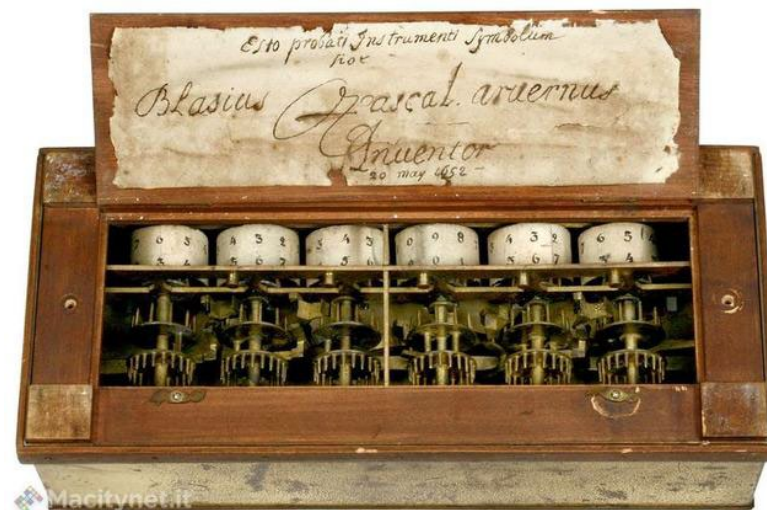 Esto probati Instrumenti Symbolum
hoc
Blasius Pascal. arvernus
Inventor
20 may 1652
7 6 5
4 3 2
3 4 3
0 9 8
4 3 2
6 5 4
3 4
5 6 7
5 6
0
5 6 7
5 4
Macitynet.it